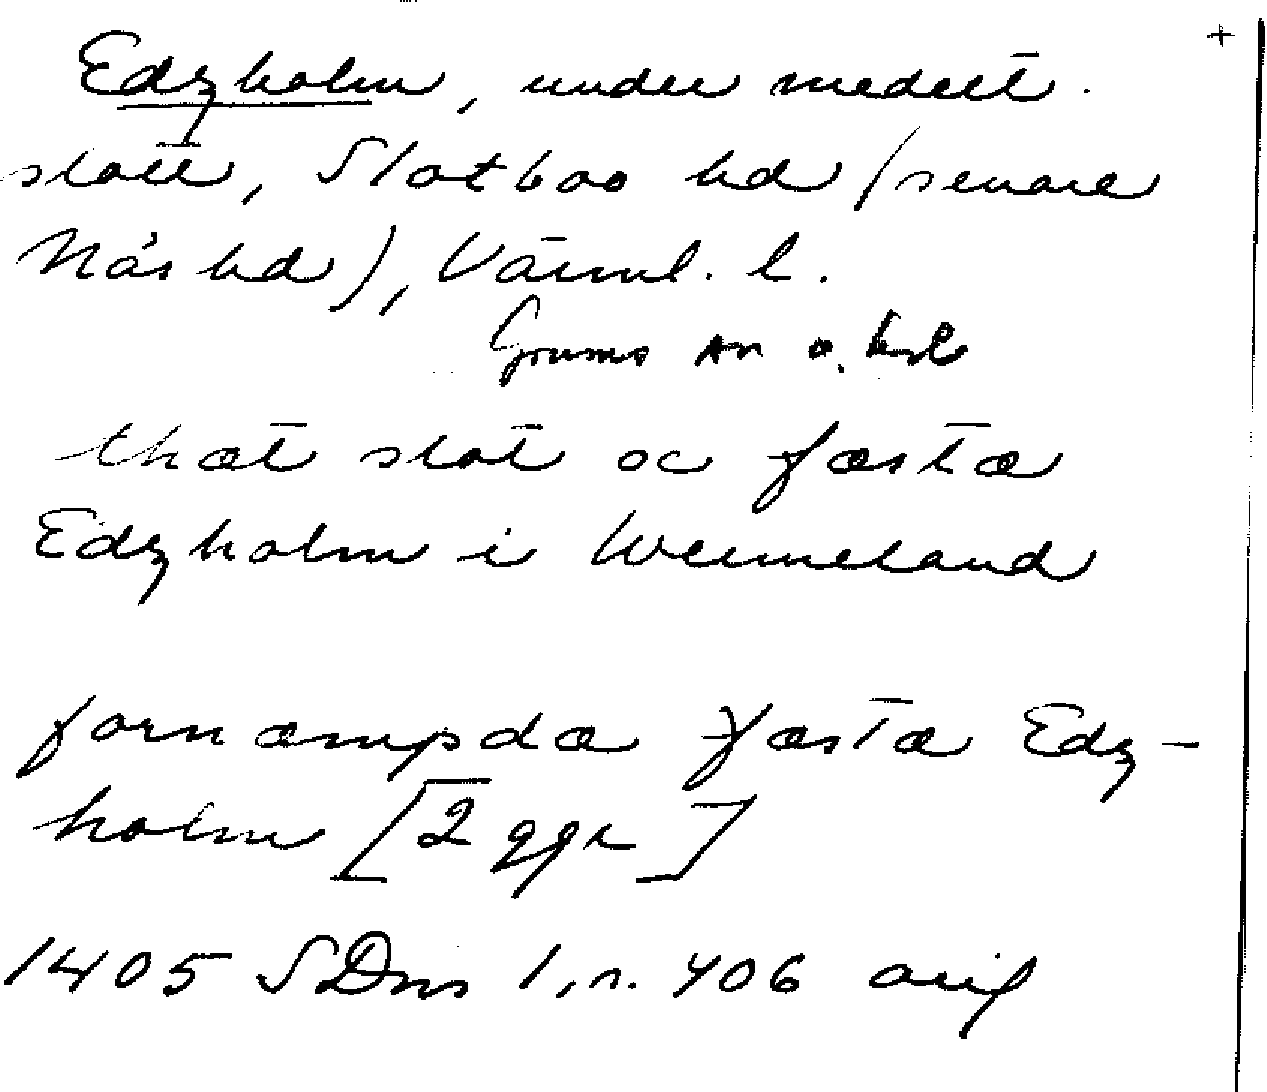 +
Edzholm, under medelt.
slott, Slotboo hd (senare
Näs hd), Värml. l.
Grums sn o. hd
thæt slot oc fæstæ
Edzholm i Wermeland
fornæmpdæ fæstæ Edz-
holm [2 ggr]
1405 SDns 1, n. 706 orig